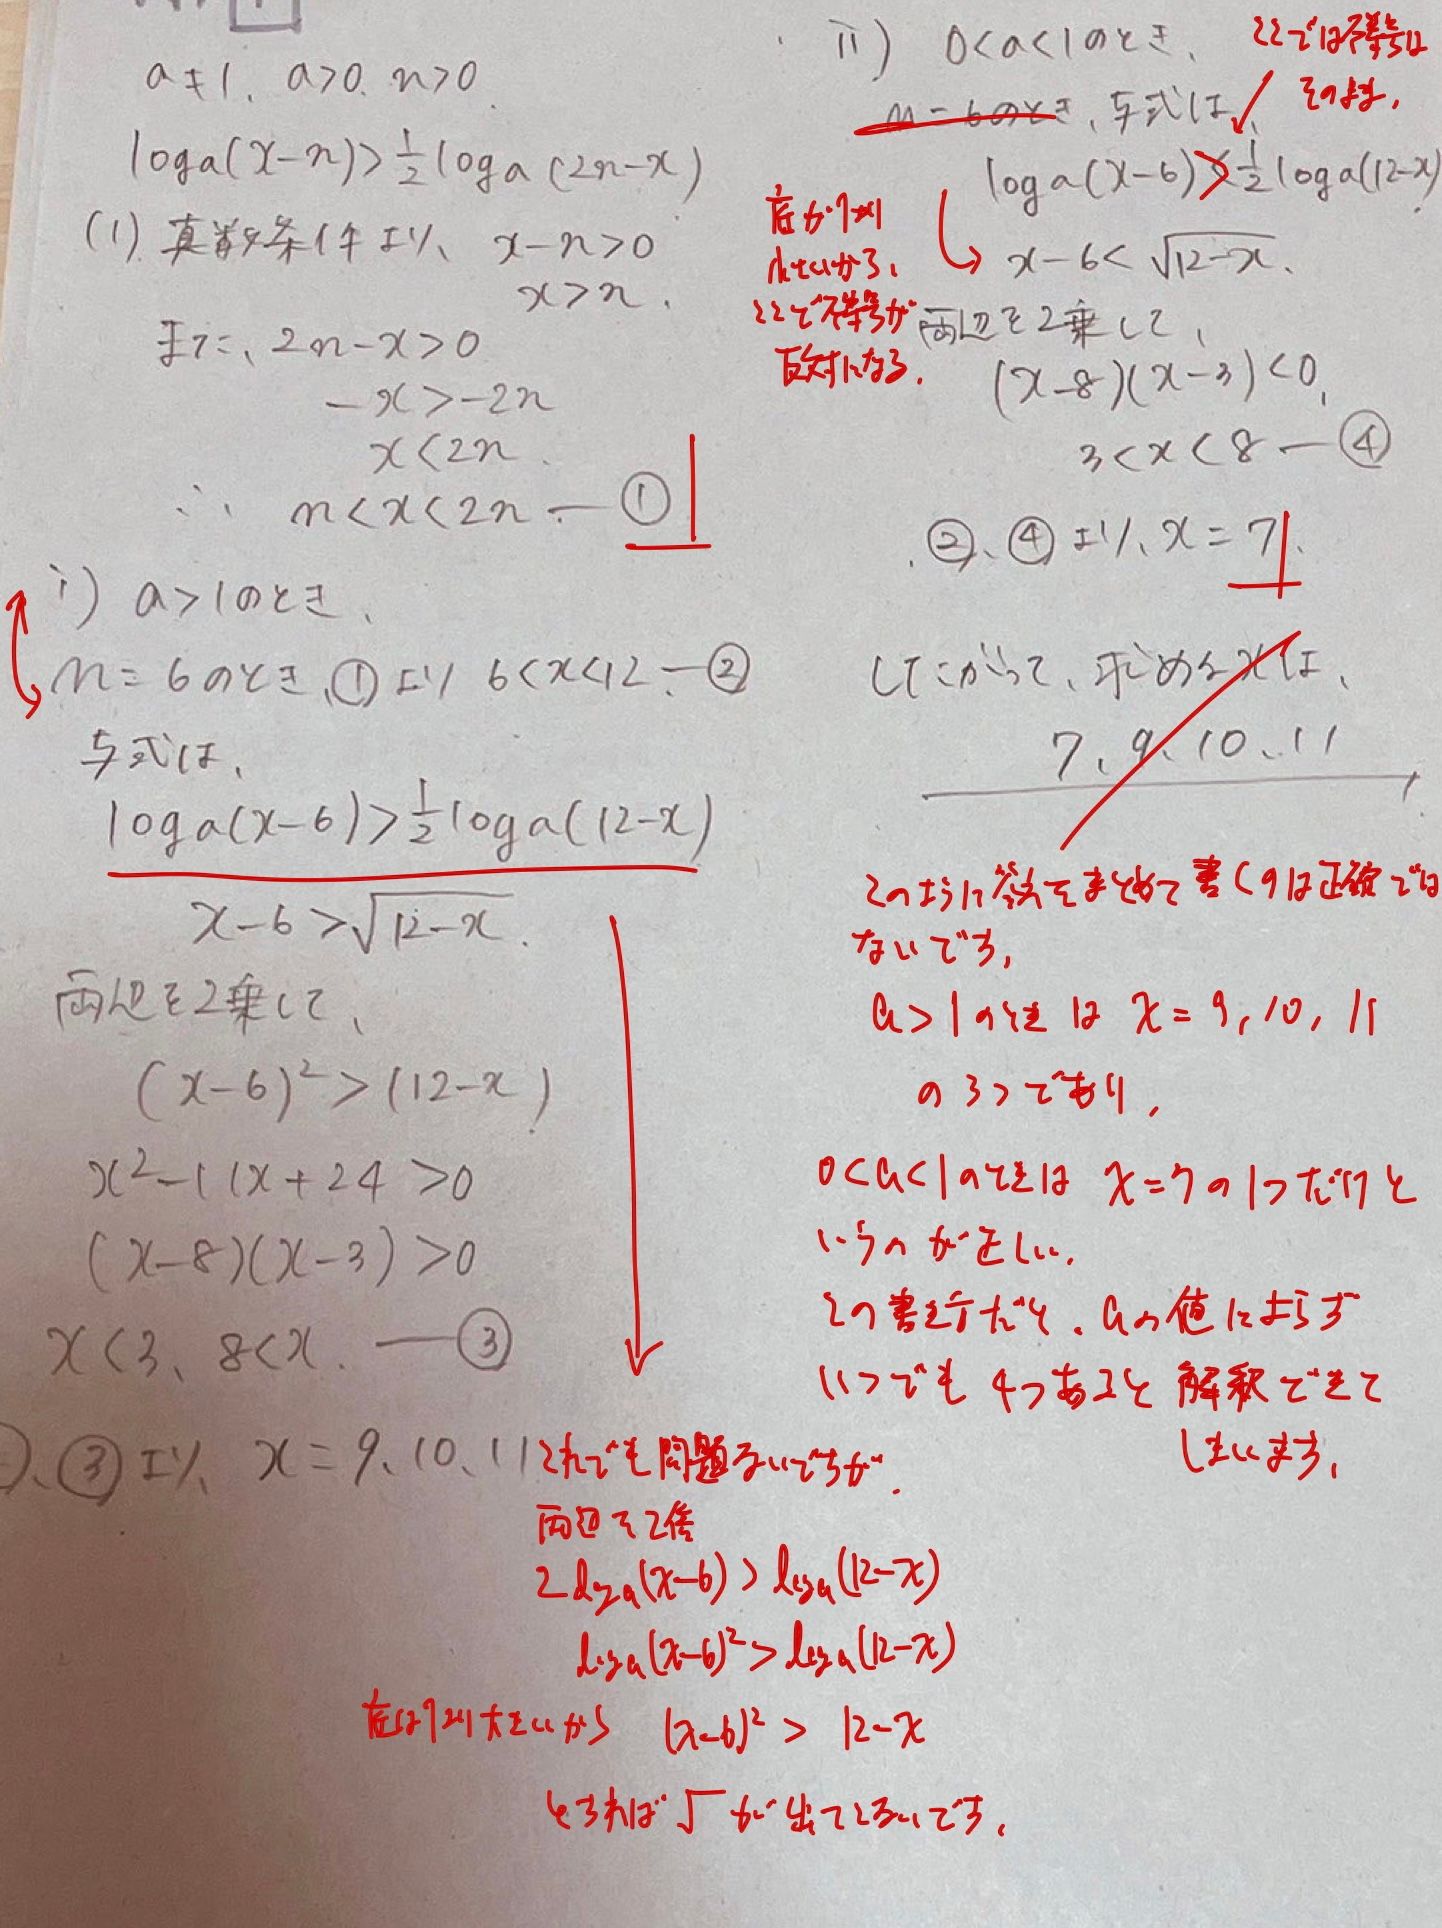 a≠1、a>0、n>0
loga(x-n)>1/2loga(2n-x)
(1) 真数条件より、x-n>0
x>n.
また、2n-x>0
-x>-2n
x<2n.
∴ n<x<2n ―①
i) a>1のとき、
n=6のとき、①より 6<x<12 ―②
与式は、
loga(x-6)>1/2loga(12-x)
x-6>√12-x.
両辺を2乗して、
(x-6)²>(12-x)
x²-11x+24>0
(x-8)(x-3)>0
x<3、8<x. ―③
、③より、x=9、10、11
これでも問題ないですが、
両辺を2倍
2loga(x-6)>loga(12-x)
loga(x-6)²>loga(12-x)
底は1より大きいから (x-6)²>12-x
とすれば√が出てこないです。
ii) 0<a<1のとき、
ここでは不等号は
そのまま。
n=6のとき、与式は、
loga(x-6)>1/2loga(12-x)
底が1より
小さいから、
ここで不等号が
反対になる。
x-6<√12-x.
両辺を2乗して、
(x-8)(x-3)<0、
3<x<8 ―④
②、④より、x=7.
したがって、求めるxは、
7、9、10、11
このように答えをまとめて書くのは正確では
ないです。
a>1のときは x=9, 10, 11
の3つであり、
0<a<1のときは x=7の1つだけと
いうのが正しい。
この書き方だと、aの値によらず
いつでも4つあると解釈できて
しまいます。